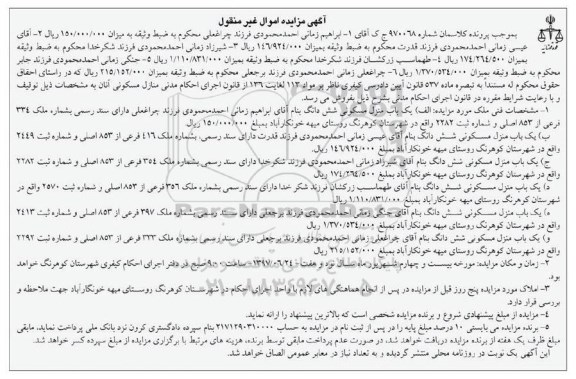 آگهی مزایده اموال غیر منقول
بموجب پرونده کلاسمان شماره ۹۷۰۰۶۸ ج ک آقای ۱- ابراهیم زمانی احمدمحمودی فرزند چراغعلی محکوم به ضبط وثیقه به میزان ۱۵۰/۰۰۰/۰۰۰ ریال ۲- آقای
عیسی زمانی احمدمحمودی فرزند قدرت محکوم به ضبط وثیقه بمیزان ۱۴۶/۹۲۴/۰۰۰ ریال ۳- شیرزاد زمانی احمدمحمودی فرزند شکرخدا محکوم به ضبط وثیقه
بمیزان ۱۷۴/۲۶۴/۵۰۰ ریال ۴- طهماسب زرکشان فرزند شکرخدا محکوم به ضبط وثیقه بمیزان ۱/۱۱۰/۸۳۱/۰۰۰ ریال ۵- جنگی زمانی احمدمحمودی فرزند جابر
محکوم به ضبط وثیقه بمیزان ۱/۳۷۰/۵۳۴/۰۰۰ ریال ۶- چراغعلی زمانی احمدمحمودی فرزند برجعلی محکوم به ضبط وثیقه بمیزان ۲۱۵/۱۵۲/۰۰۰ ریال که در راستای احقاق
حقوق محکوم له مستنداً به تبصره ماده ۵۳۷ قانون آیین دادرسی کیفری ناظر بر مواد ۱۱۳ لغایت ۱۳۶ از قانون اجرای احکام مدنی منازل مسکونی آنان به مشخصات ذیل توقیف
و با رعایت شرایط مقرره در قانون اجرای احکام مدنی بشرح ذیل بفروش می رسد.
۱- مشخصات فنی ملک مورد مزایده: الف) یک باب منزل مسکونی شش دانگ بنام آقای ابراهیم زمانی احمدمحمودی فرزند چراغعلی دارای سند رسمی بشماره ملک ۳۳۴
فرعی از ۸۵۳ اصلی و شماره ثبت ۲۲۸۲ واقع در شهرستان کوهرنگ روستای میهه خونکارآباد بمبلغ ۱۵۰/۰۰۰/۰۰۰ ریال
ب) یک باب منزل مسکونی شش دانگ بنام آقای عیسی زمانی احمدمحمودی فرزند قدرت دارای سند رسمی، بشماره ملک ۴۱۶ فرعی از ۸۵۳ اصلی و شماره ثبت ۲۴۴۹
واقع در شهرستان کوهرنگ روستای میهه خونکارآباد بمبلغ ۱۴۶/۹۲۴/۰۰۰ ریال
ج) یک باب منزل مسکونی شش دانگ بنام آقای شیرزاد زمانی احمدمحمودی فرزند شکرخدا دارای سند رسمی بشماره ملک ۳۵۴ فرعی از ۸۵۳ اصلی و شماره ثبت ۲۲۸۲
واقع در شهرستان کوهرنگ روستای میهه خونکارآباد بمبلغ ۱۷۴/۲۶۴/۵۰۰ ریال
د) یک باب منزل مسکونی شش دانگ بنام آقای طهماسب زرکشان فرزند شکر خدا دارای سند رسمی بشماره ملک ۳۵۶ فرعی از ۸۵۳ اصلی و شماره ثبت ۲۵۷۰ واقع در
شهرستان کوهرنگ روستای میهه خونکارآباد بمبلغ ۱/۱۱۰/۸۳۱/۰۰۰ ریال
ه) یک باب منزل مسکونی شش دانگ بنام آقای جنگی زمانی احمدمحمودی فرزند برجعلی دارای سند رسمی بشماره ملک ۳۹۷ فرعی از ۸۵۳ اصلی و شماره ثبت ۲۴۱۳
واقع در شهرستان کوهرنگ روستای میهه خونکارآباد بمبلغ ۱/۳۷۰/۵۳۴/۰۰۰ ریال
و) یک باب منزل مسکونی شش دانگ بنام آقای چراغعلی زمانی احمدمحمودی فرزند برجعلی دارای سند رسمی بشماره ملک ۳۲۳ فرعی از ۸۵۳ اصلی و شماره ثبت ۲۲۹۲
واقع در شهرستان کوهرنگ روستای میهه خونکارآباد بمبلغ ۲۱۵/۱۵۲/۰۰۰ ریال
۲- زمان و مکان مزایده: مورخه بیست و چهارم شهریورماه سال نود و هفت - ۱۳۹۷/۰۶/۲۴ ساعت ۹:۰۰ صبح در دفتر اجرای احکام کیفری شهرستان کوهرنگ خواهد
بود.
۳- املاک مورد مزایده پنج روز قبل از مزایده در پس از انجام هماهنگی های لازم با واحد اجرای احکام در شهرستان کوهرنگ روستای میهه خونکارآباد جهت ملاحظه و
بررسی قرار دارد.
۴- مزایده از مبلغ پیشنهادی شروع و برنده مزایده شخصی است که بالاترین پیشنهاد را ارائه نماید.
۵- برنده مزایده می بایستی ۱۰ درصد مبلغ پایه را در پس از ثبت نام در مزایده به حساب ۲۱۷۱۲۹۰۳۱۰۰۰۰ بنام سپرده دادگستری کرون نزد بانک ملی پرداخت نماید. مابقی
مبلغ ظرف یک هفته از برنده مزایده دریافت خواهد شد. در صورت عدم پرداخت مابقی توسط برنده، هزینه های مرتبط با برگزاری مزایده از مبلغ سپرده کسر خواهد شد.
این آگهی یک نوبت در روزنامه محلی منتشر گردیده و به تعداد نیاز در معابر عمومی الصاق خواهد شد.